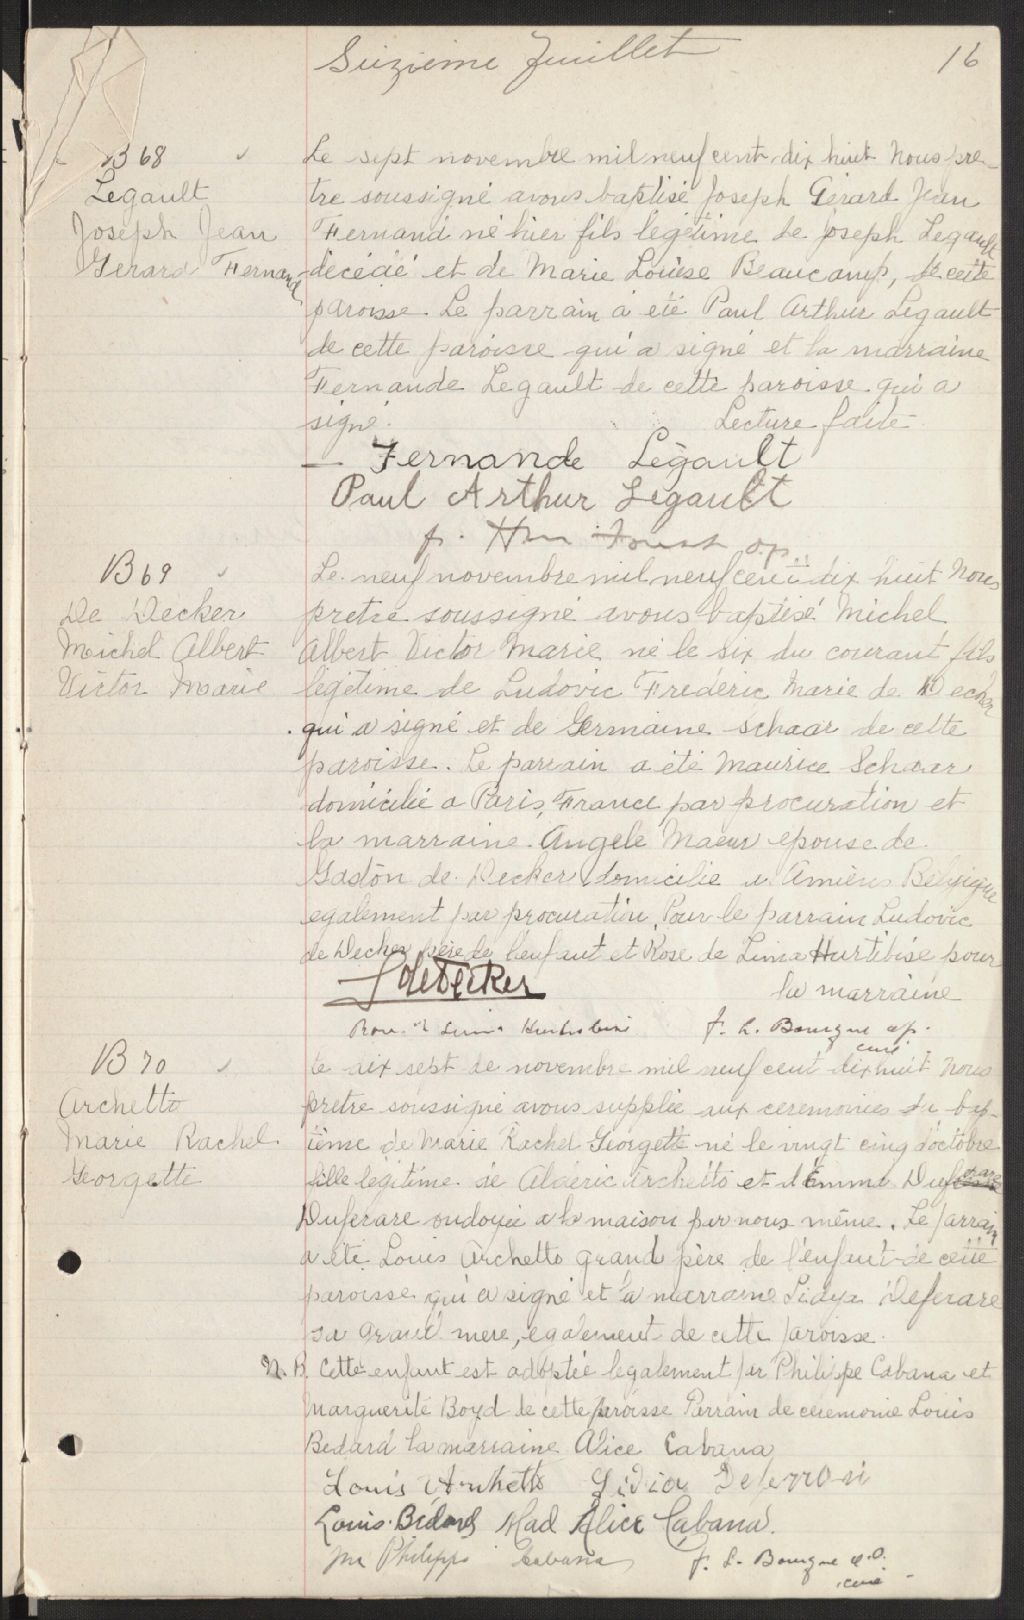 Siezième Feuillet
16
B 68
Legault
Joseph Jean
Gerard Fernand
Le sept novembre mil neuf cent dix huit Nous pre-
tre soussigné avons baptisé Joseph Gérard Jean
Fernand né hier fils légitime de Joseph Legault
décédé et de Marie Louise Beaucamp, de cette
paroisse. Le parrain a été Paul Arthur Legault
de cette paroisse qui a signé et la marraine
Fernande Legault de cette paroisse qui a
signé. Lecture faite
Fernande Légault
Paul Arthur Legault
f. Hm op.
B 69
De Decker
Michel Albert
Victor Marie
Le neuf novembre mil neuf cent dix huit Nous
pretre soussigné avons baptisé Michel
Albert Victor Marie né le six du courant fils
légitime de Ludovic Fréderic Marie de Decker
qui a signé et de Germaine Schaar de cette
paroisse. Le parrain a été Maurice Schaar
domicilié a Paris, France, par procuration et
la marraine Angele Maeur epouse de
Gaston de Decker domicilie a Amières Belgique
egalement par procuration. Pour le parrain Ludovic
de Decker père de l'enfant et Rose de Lima Hurtibise pour
la marraine
LdeDecker
Rose de Lima Hurtubise f. L. Bourgue op.
curé
B 70
Archetto
Marie Rachel
Georgette
Le dix sept de novembre mil neuf cent dix huit Nous
pretre soussigné avons supplée aux ceremonies du bap-
tème de Marie Rachel Georgette né le vingt cinq d'octobre
fille légitime de Aldéric Archetto et d'Emma
Duferare ondoyée a la maison par nous même. Le parrain
a été Louis Archetto grand père de l'enfant de cette
paroisse qui a signé et la marraine Lidya Deferare
sa grand mere, egalement de cette paroisse.
N.B. Cette enfant est adoptée legalement par Philippe Cabana et
Marguerite Boyd de cette paroisse Parrain de ceremonie Louis
Bedard la marraine Alice Cabana
Louis Archetto Lidia Deferrosi
Louis Bedard Mad Alice Cabana.
Philippe Cabana f. L. Bourgue o.p.
curé